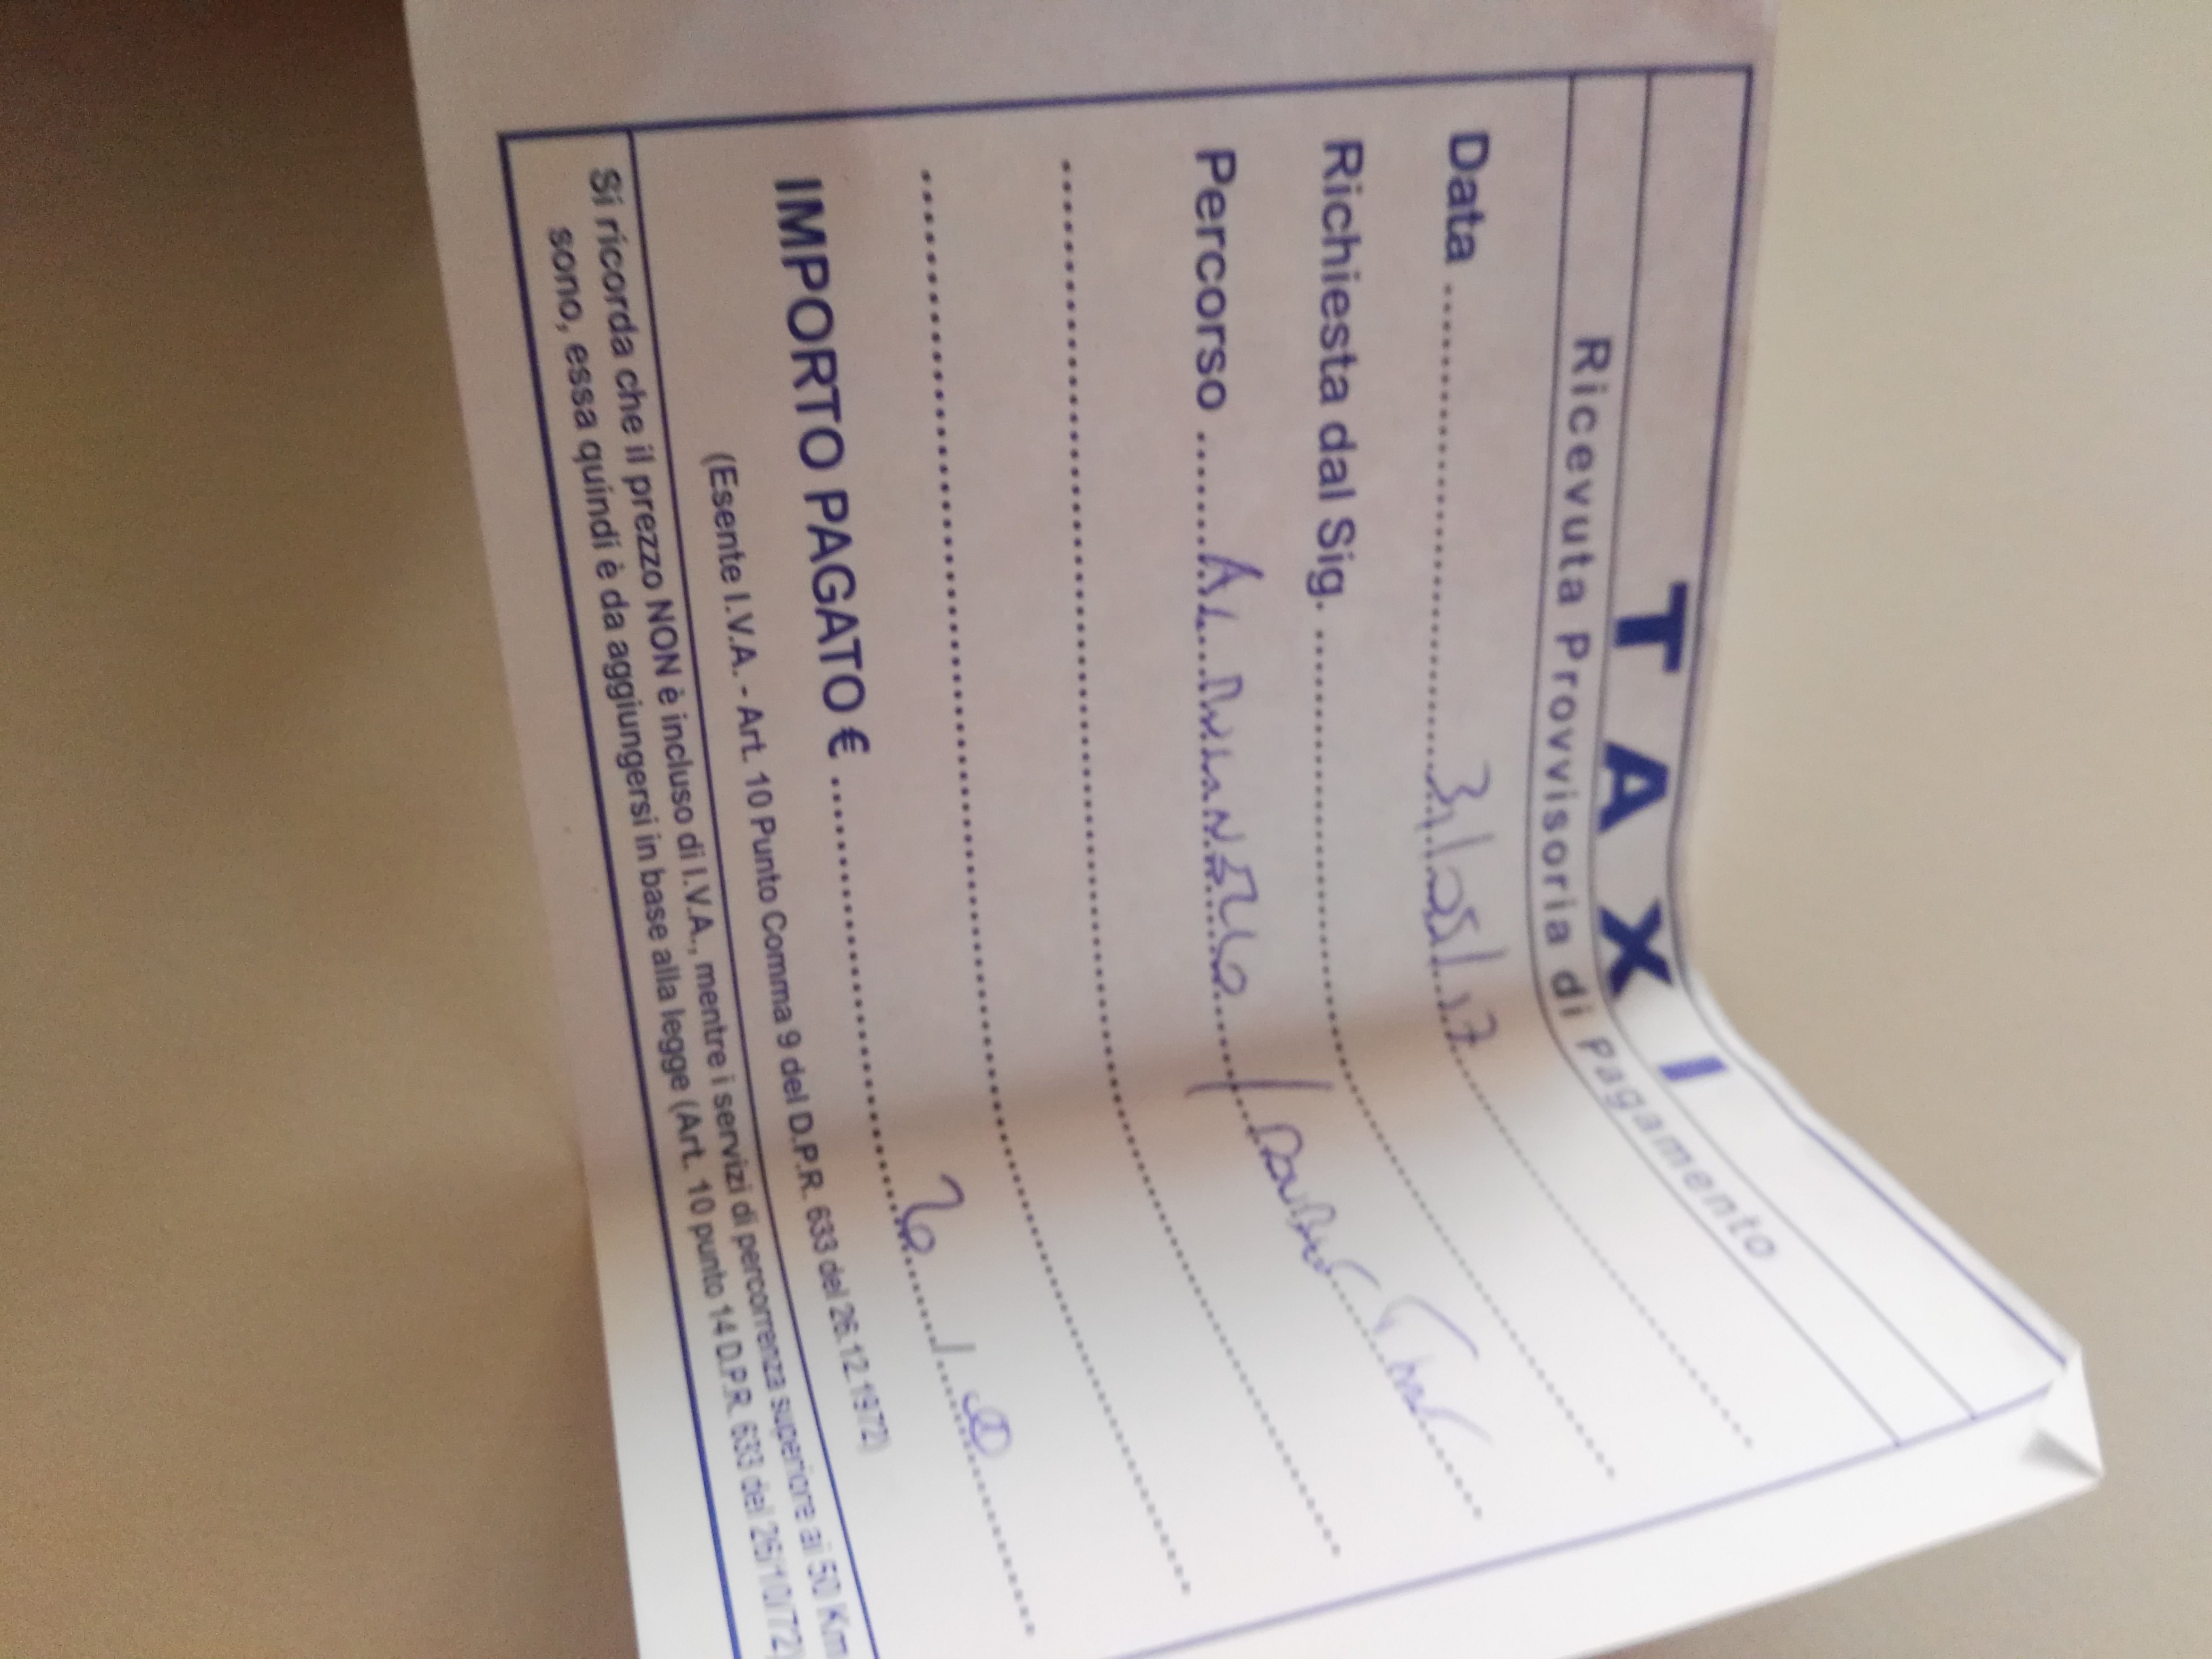 TAXI
Ricevuta Provvisoria di Pagamento
Data ........ 31/05/17 ........
Richiesta dal Sig. ........
Percorso ........
IMPORTO PAGATO € ........
(Esente I.V.A. - Art. 10 Punto Comma 9 del D.P.R. 633 del 26.12.1972)
Si ricorda che il prezzo NON è incluso di I.V.A., mentre i servizi di percorrenza superiore ai 50 Km
sono, essa quindi è da aggiungersi in base alla legge (Art. 10 punto 14 D.P.R. 633 del 26/10/72)